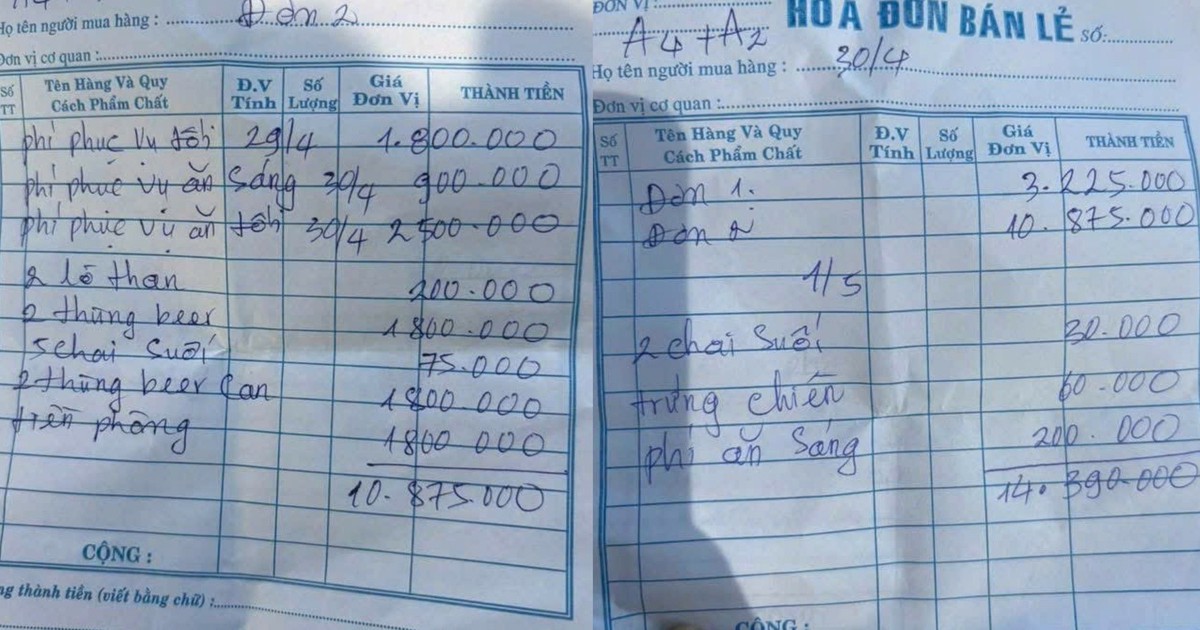 Họ tên người mua hàng : Đơn 2
Đơn vị cơ quan :
Số TT Tên Hàng Và Quy Cách Phẩm Chất Đ.V Tính Số Lượng Giá Đơn Vị THÀNH TIỀN
phí phục vụ tối 29/4 1.800.000
phí phục vụ ăn sáng 30/4 900.000
phí phục vụ ăn tối 30/4 2500.000
2 lò than 200.000
2 thùng beer 1800.000
5 chai suối 75.000
2 thùng beer Can 1800.000
tiền phòng 1800 000
10.875.000
CỘNG :
ng thành tiền (viết bằng chữ) :
ĐƠN VỊ :
HÓA ĐƠN BÁN LẺ Số:
A4+A2
Họ tên người mua hàng : 30/4
Đơn vị cơ quan :
Số TT Tên Hàng Và Quy Cách Phẩm Chất Đ.V Tính Số Lượng Giá Đơn Vị THÀNH TIỀN
Đơn 1. 3.225.000
Đơn 2 10.875.000
1/5
2 chai suối 30.000
trứng chiên 60.000
phí ăn sáng 200.000
14.390.000
CỘNG :